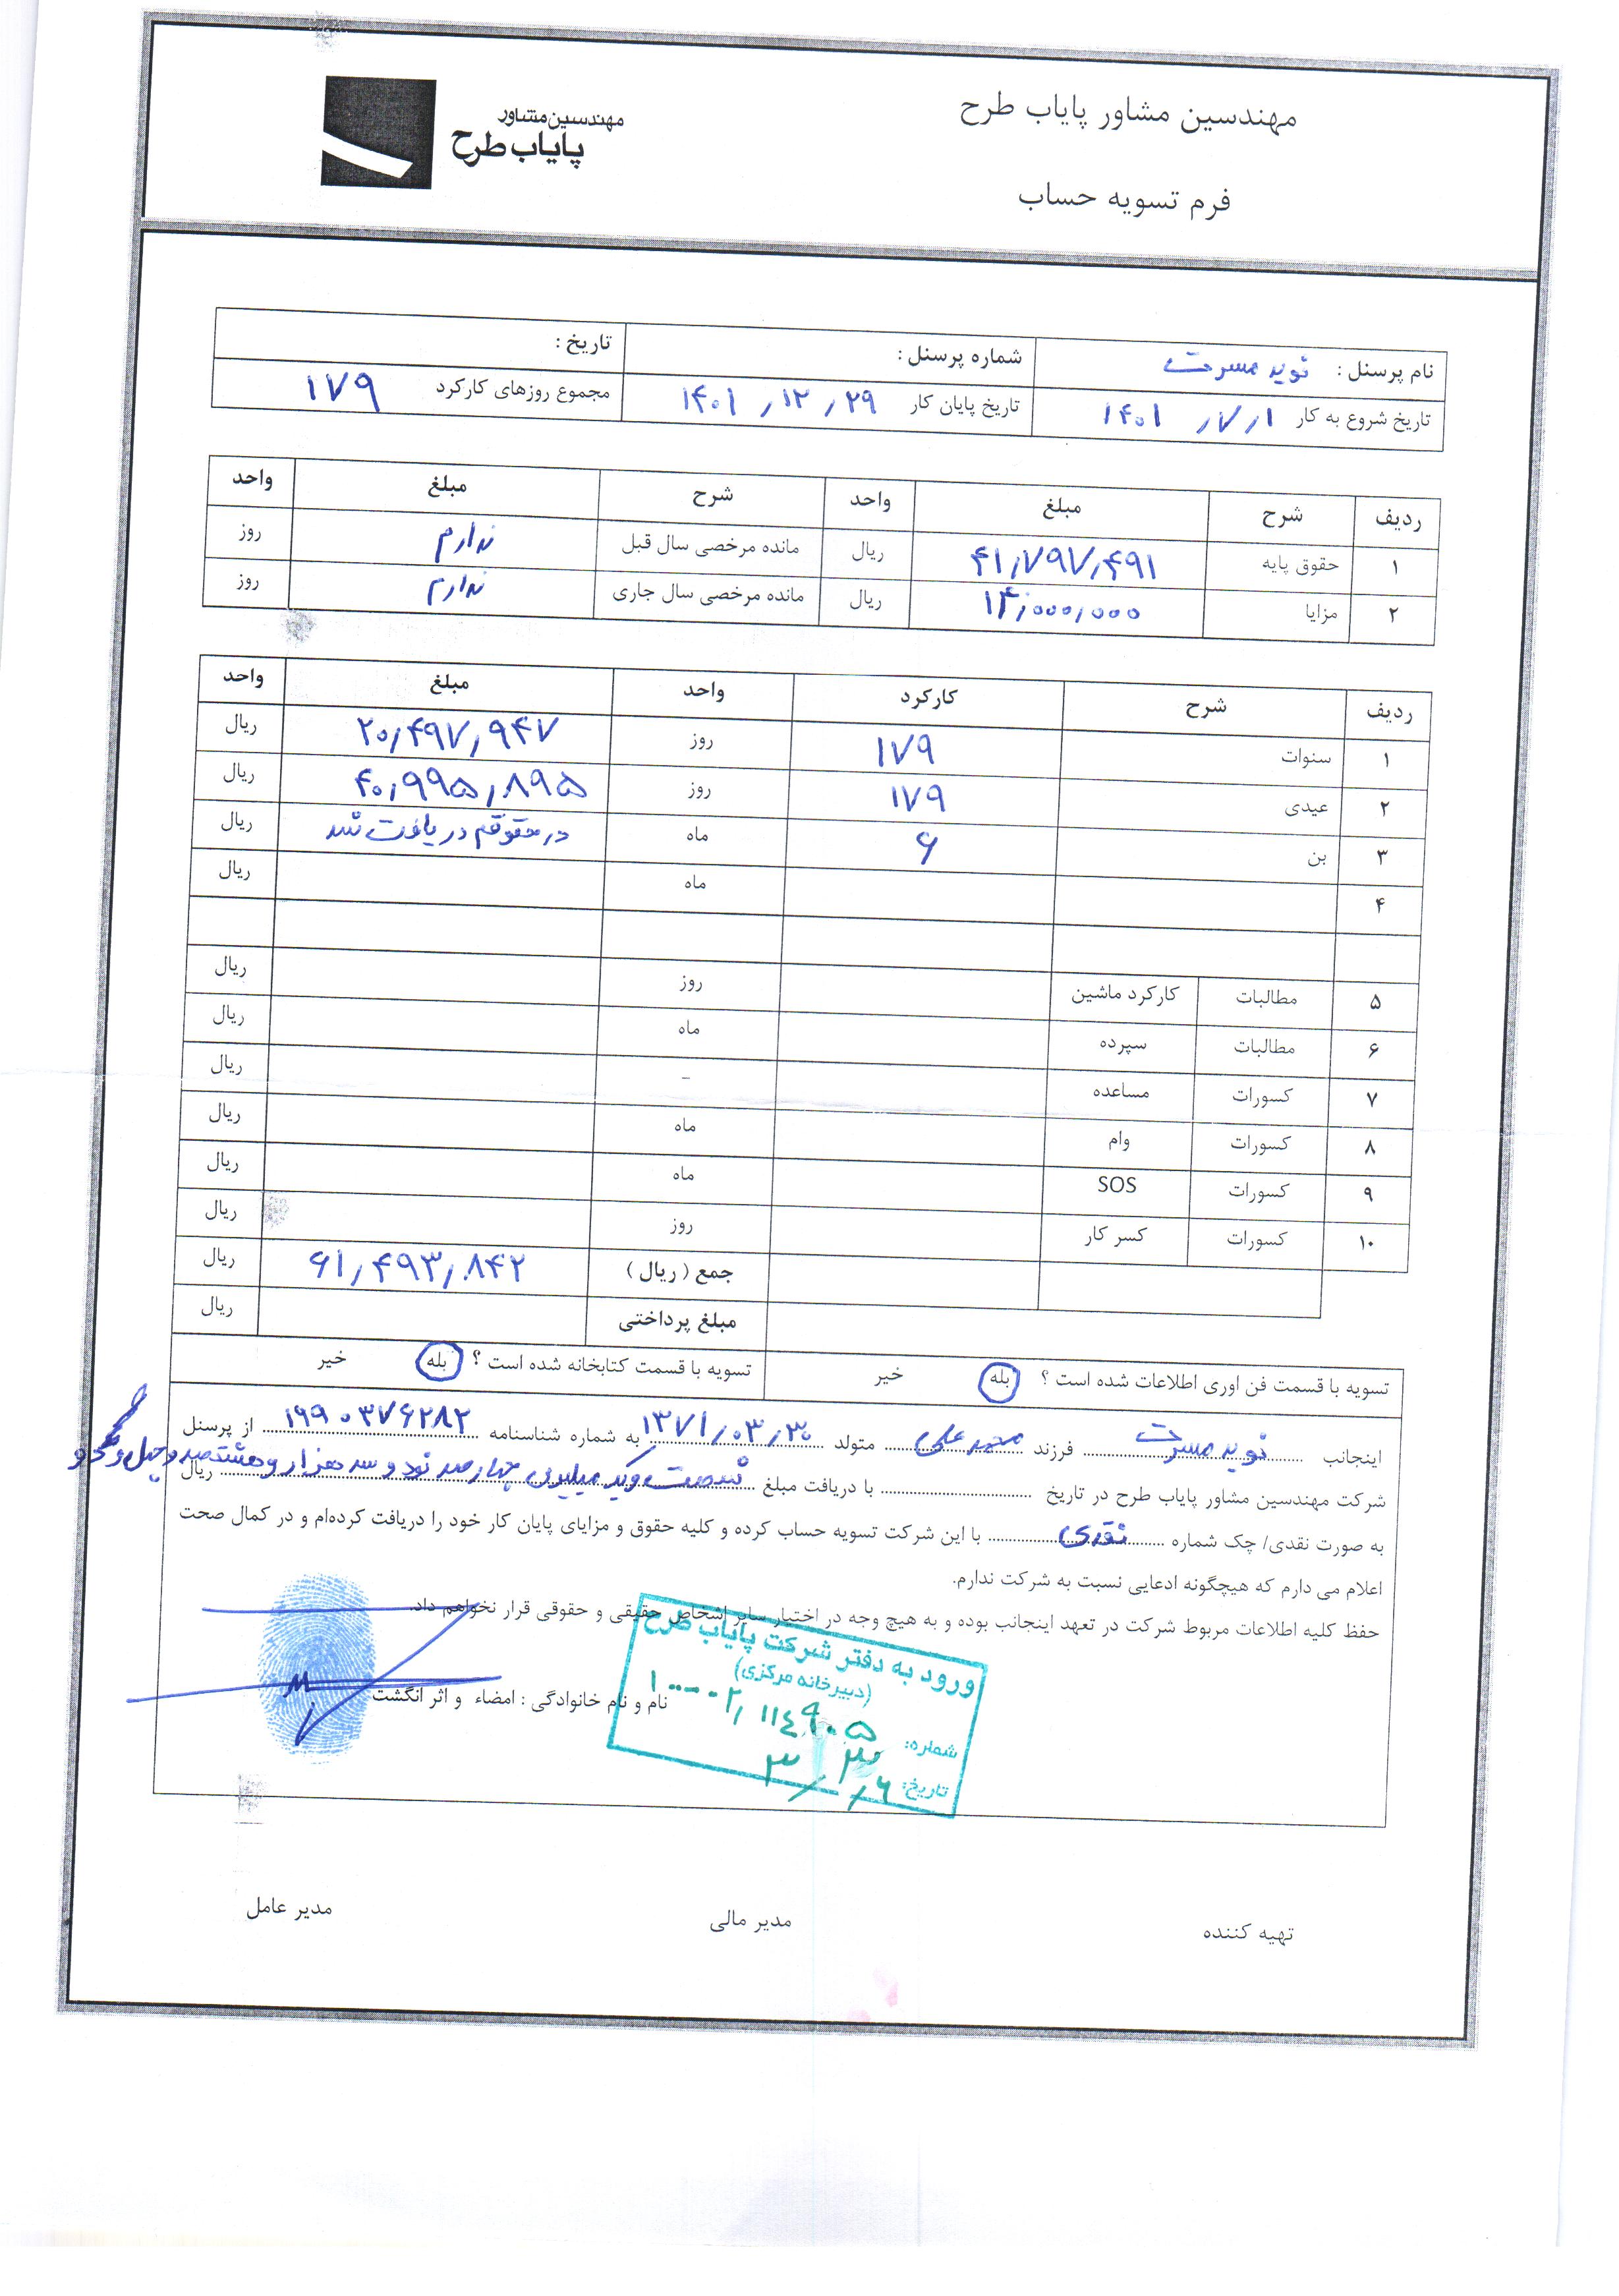 مهندسین مشاور پایاب طرح
مهندسین مشاور
پایاب طرح
فرم تسویه حساب
نام پرسنل : نوید مسرت شماره پرسنل : تاریخ :
تاریخ شروع به کار ۱۴۰۱/۷/۱ تاریخ پایان کار ۱۴۰۱/۱۲/۲۹ مجموع روزهای کارکرد ۱۷۹
ردیف شرح مبلغ واحد شرح مبلغ واحد
۱ حقوق پایه ۴۱,۷۹۷,۴۹۱ ریال مانده مرخصی سال قبل ندارم روز
۲ مزایا ۱۴,۰۰۰,۰۰۰ ریال مانده مرخصی سال جاری ندارم روز
ردیف شرح کارکرد واحد مبلغ واحد
۱ سنوات ۱۷۹ روز ۲۰,۴۹۷,۹۴۷ ریال
۲ عیدی ۱۷۹ روز ۴۰,۹۹۵,۸۹۵ ریال
۳ بن ۶ ماه در حقوقم دریافت شد ریال
۴ ماه ریال
۵ مطالبات کارکرد ماشین روز ریال
۶ مطالبات سپرده ماه ریال
۷ کسورات مساعده - ریال
۸ کسورات وام ماه ریال
۹ کسورات SOS ماه ریال
۱۰ کسورات کسر کار روز ریال
جمع ( ریال ) ۶۱,۴۹۳,۸۴۲ ریال
مبلغ پرداختی ریال
تسویه با قسمت فن اوری اطلاعات شده است ؟ بله خیر تسویه با قسمت کتابخانه شده است ؟ بله خیر
اینجانب نوید مسرت فرزند محمد علی متولد ۱۳۷۱/۰۳/۳۰ به شماره شناسنامه ۱۹۹۰۳۷۶۲۸۲ از پرسنل
شرکت مهندسین مشاور پایاب طرح در تاریخ با دریافت مبلغ شصت و یک میلیون چهارصد نود و سه هزار و هشتصد و چهل و دو ریال
به صورت نقدی/ چک شماره نقدی با این شرکت تسویه حساب کرده و کلیه حقوق و مزایای پایان کار خود را دریافت کرده‌ام و در کمال صحت
اعلام می دارم که هیچگونه ادعایی نسبت به شرکت ندارم.
حفظ کلیه اطلاعات مربوط شرکت در تعهد اینجانب بوده و به هیچ وجه در اختیار سایر اشخاص حقیقی و حقوقی قرار نخواهم داد.
نام و نام خانوادگی : امضاء و اثر انگشت
ورود به دفتر شرکت پایاب طرح
(دبیرخانه مرکزی)
شماره:
تاریخ:
تهیه کننده مدیر مالی مدیر عامل